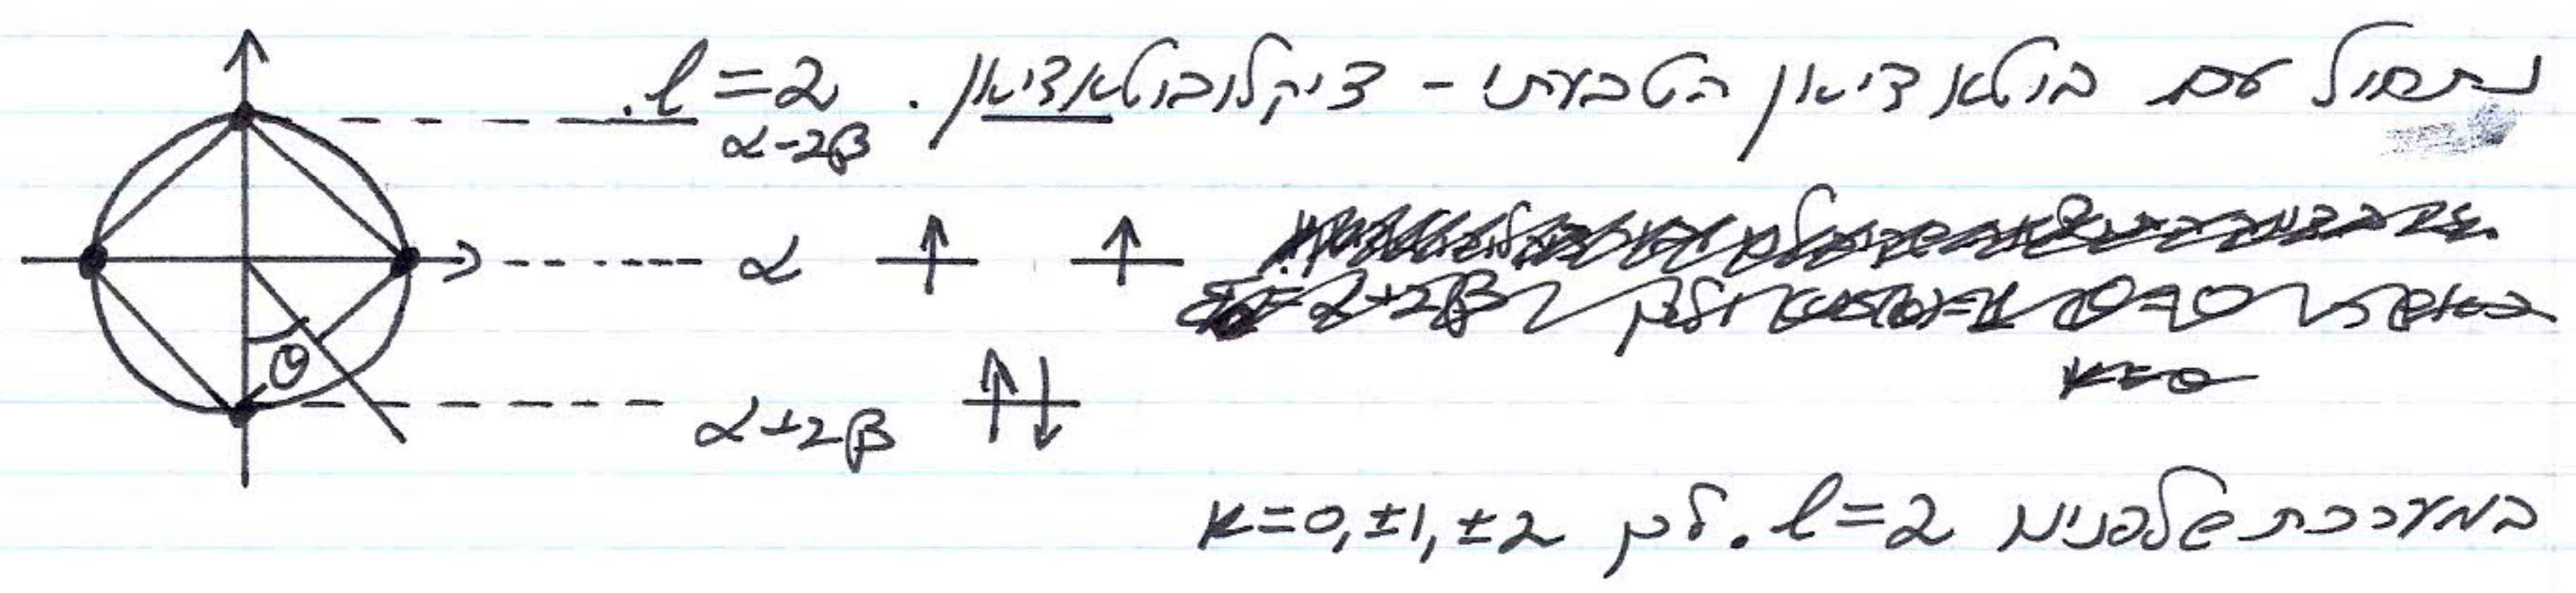 נתחיל עם בוטאדיאן הטבעתי - ציקלובוטאדיאן. l=2.
α-2β
α ↑ ↑
α+2β ↑↓
θ
במערכת שלפנינו l=2. לכן k=0,±1,±2